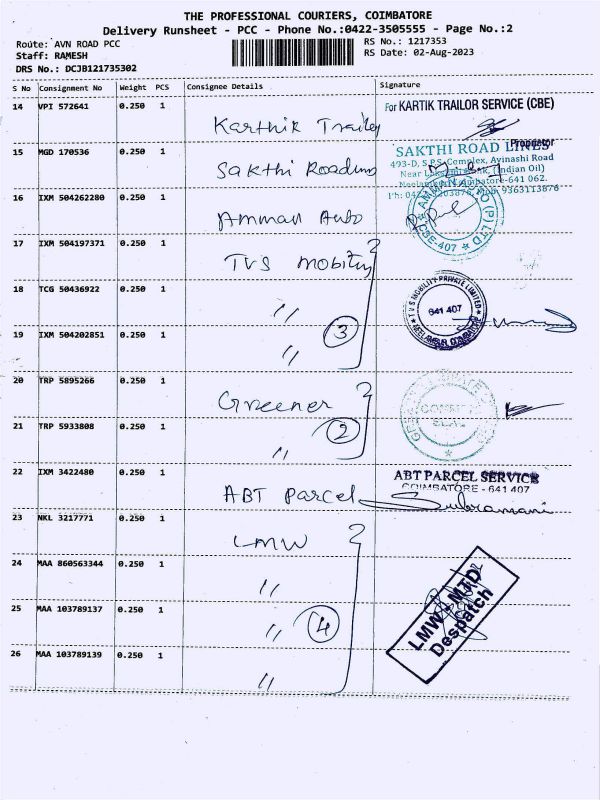 THE PROFESSIONAL COURIERS, COIMBATORE
Delivery Runsheet - PCC - Phone No.:0422-3505555 - Page No.:2
Route: AVN ROAD PCC
RS No.: 1217353
Staff: RAMESH
RS Date: 02-Aug-2023
DRS No.: DCJB121735302
S No Consignment No Weight PCS Consignee Details Signature
14 VPI 572641 0.250 1
For KARTIK TRAILOR SERVICE (CBE)
Karthik Trailey
Proprietor
15 MGD 170536 0.250 1
SAKTHI ROAD LINES
493-D, S.P.S. Complex, Avinashi Road
(Indian Oil)
641 062.
9363113876
Sakthi Roadlines
16 IXM 504262280 0.250 1
Amman Auto
(P) LTD
CBE-407
17 IXM 504197371 0.250 1
TVS Mobility
18 TCG 50436922 0.250 1
TVS MOBILITY PRIVATE LIMITED
641 407
NEELAMBUR, COIMBATORE
"
19 IXM 504202851 0.250 1
3
"
20 TRP 5895266 0.250 1
Greener
COMMON
SEAL
21 TRP 5933808 0.250 1
2
"
22 IXM 3422480 0.250 1
ABT PARCEL SERVICE
COIMBATORE - 641 407
ABT Parcel
Subramani
23 NKL 3217771 0.250 1
LMW
24 MAA 860563344 0.250 1
"
LMW LMTD
Despatch
25 MAA 103789137 0.250 1
"
4
26 MAA 103789139 0.250 1
"